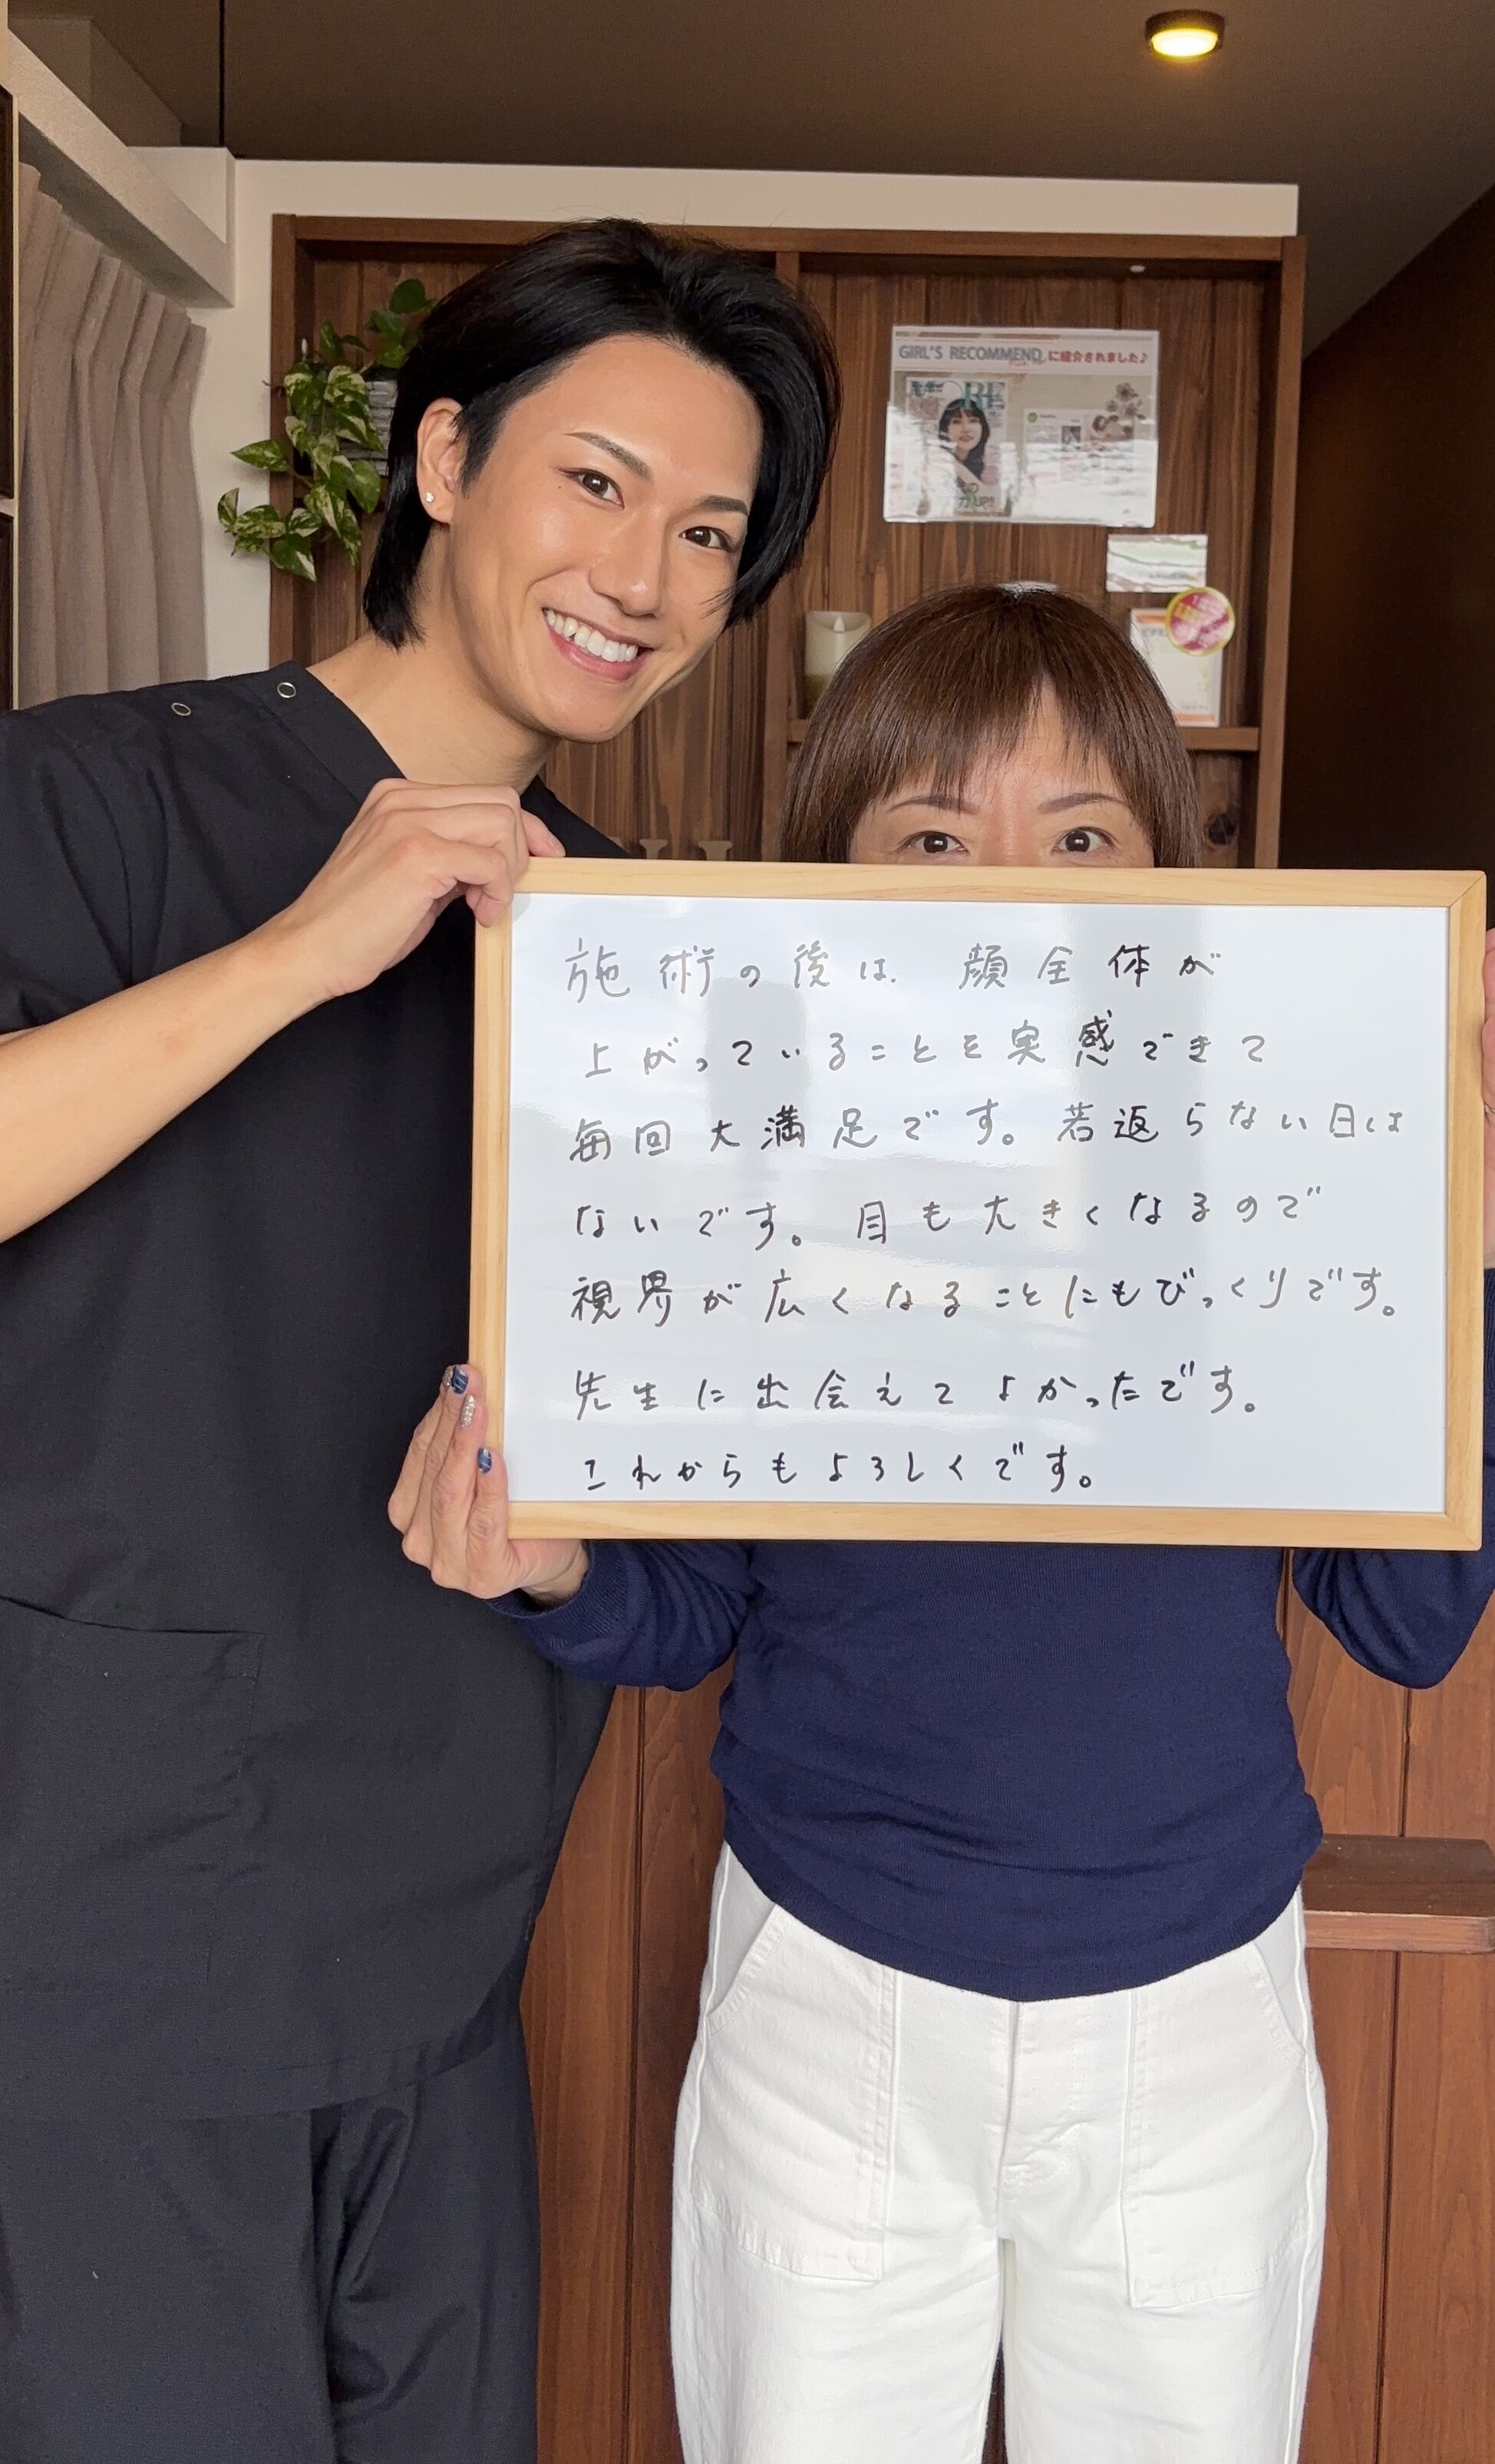 GIRL'S RECOMMEND に紹介されました♪
MORE
施術の後は 顔全体が
上がっていることを実感できて
毎回大満足です。若返らない日は
ないです。目も大きくなるので
視界が広くなることにもびっくりです。
先生に出会えてよかったです。
これからもよろしくです。